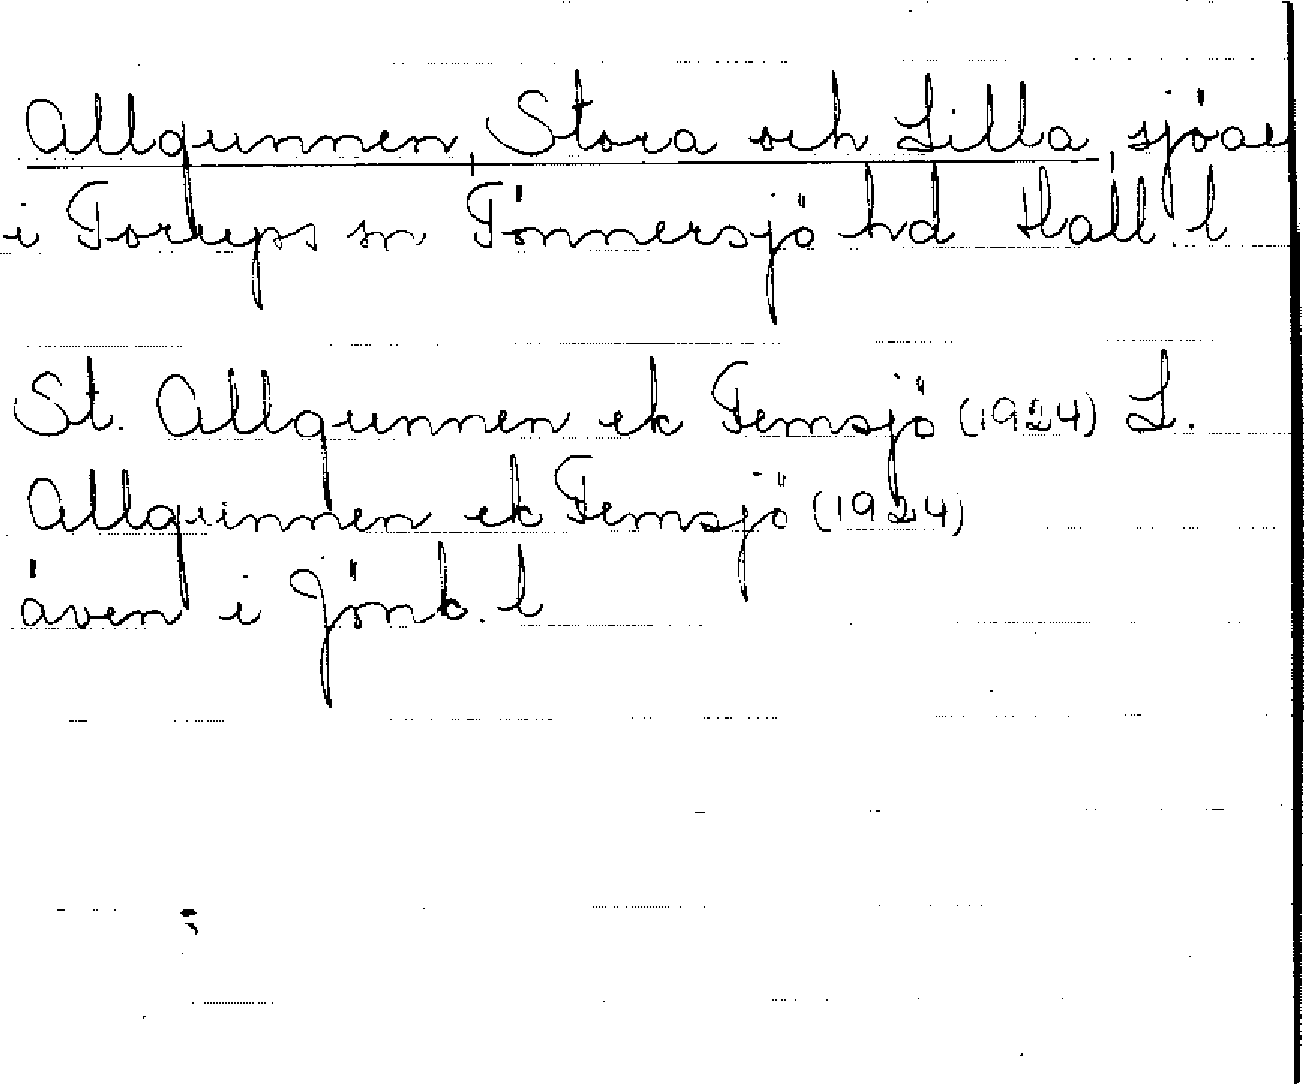 Allgunnen, Stora och Lilla, sjöar
i Torups sn Tönnersjö hd Hall l
St. Allgunnen ek Femsjö (1924) L.
Allgunnen ek Femsjö (1924)
även i Jönk. l